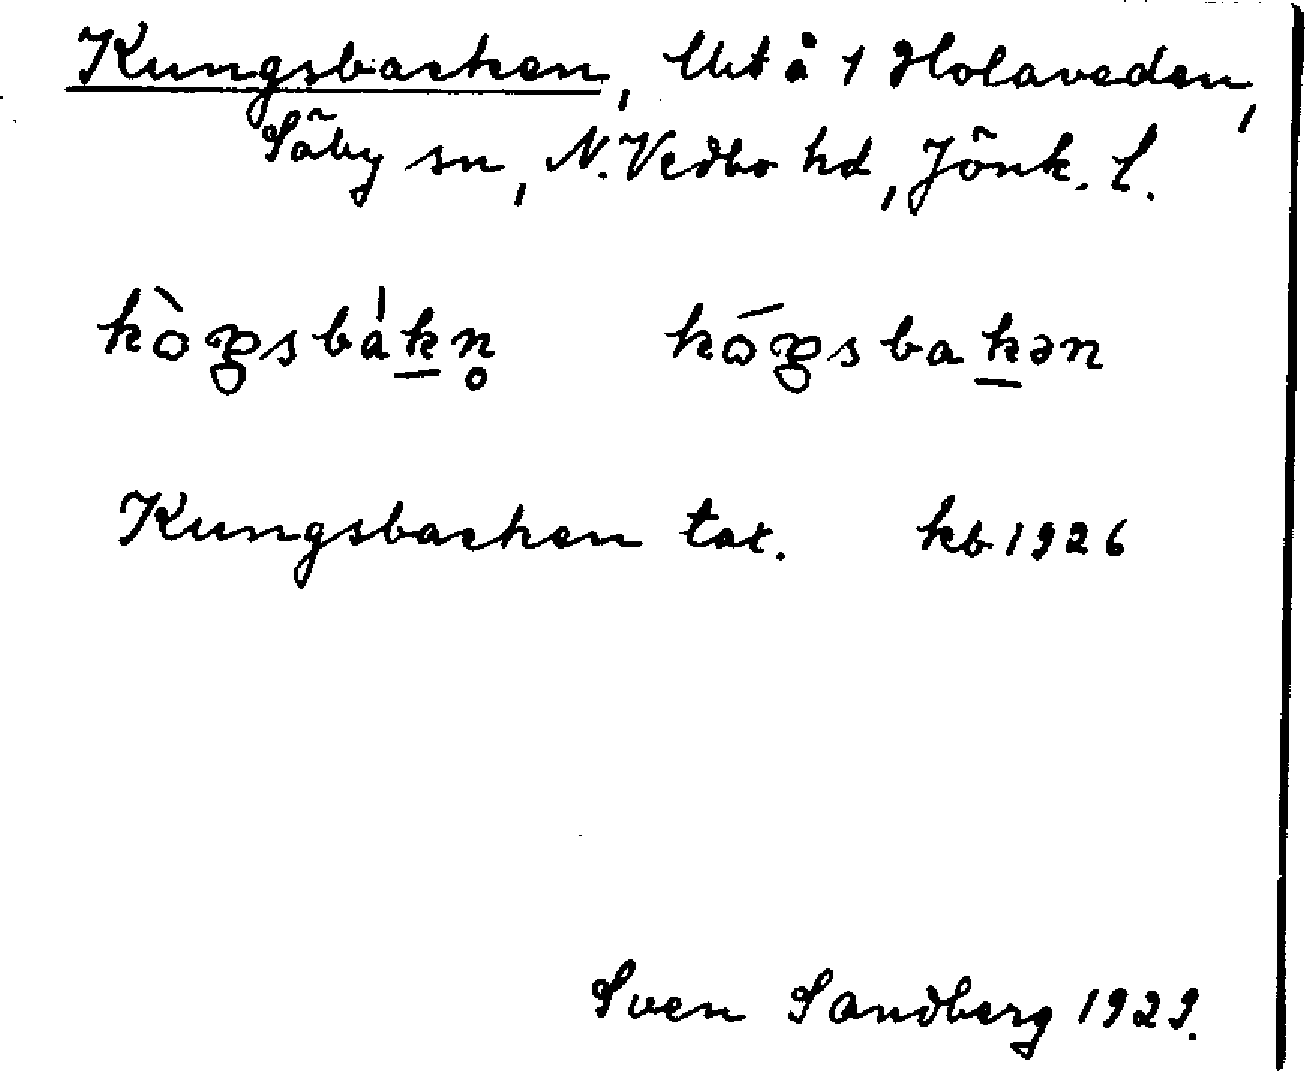 Kungsbacken, lht å 1 Holaveden,
Säby sn, N. Vedbo hd, Jönk. l.
kòŋsbák̠n̥ kóŋsbak̠ən
Kungsbacken tax. kb 1926
Sven Sandberg 1929.